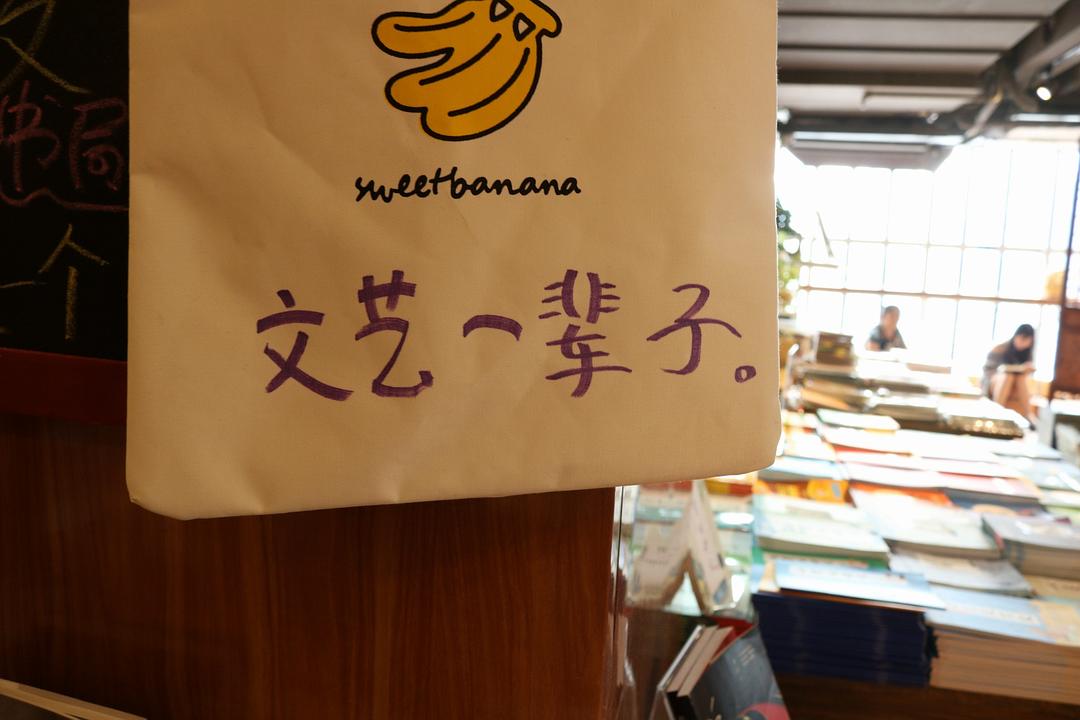 书局
个
sweetbanana
文艺一辈子。